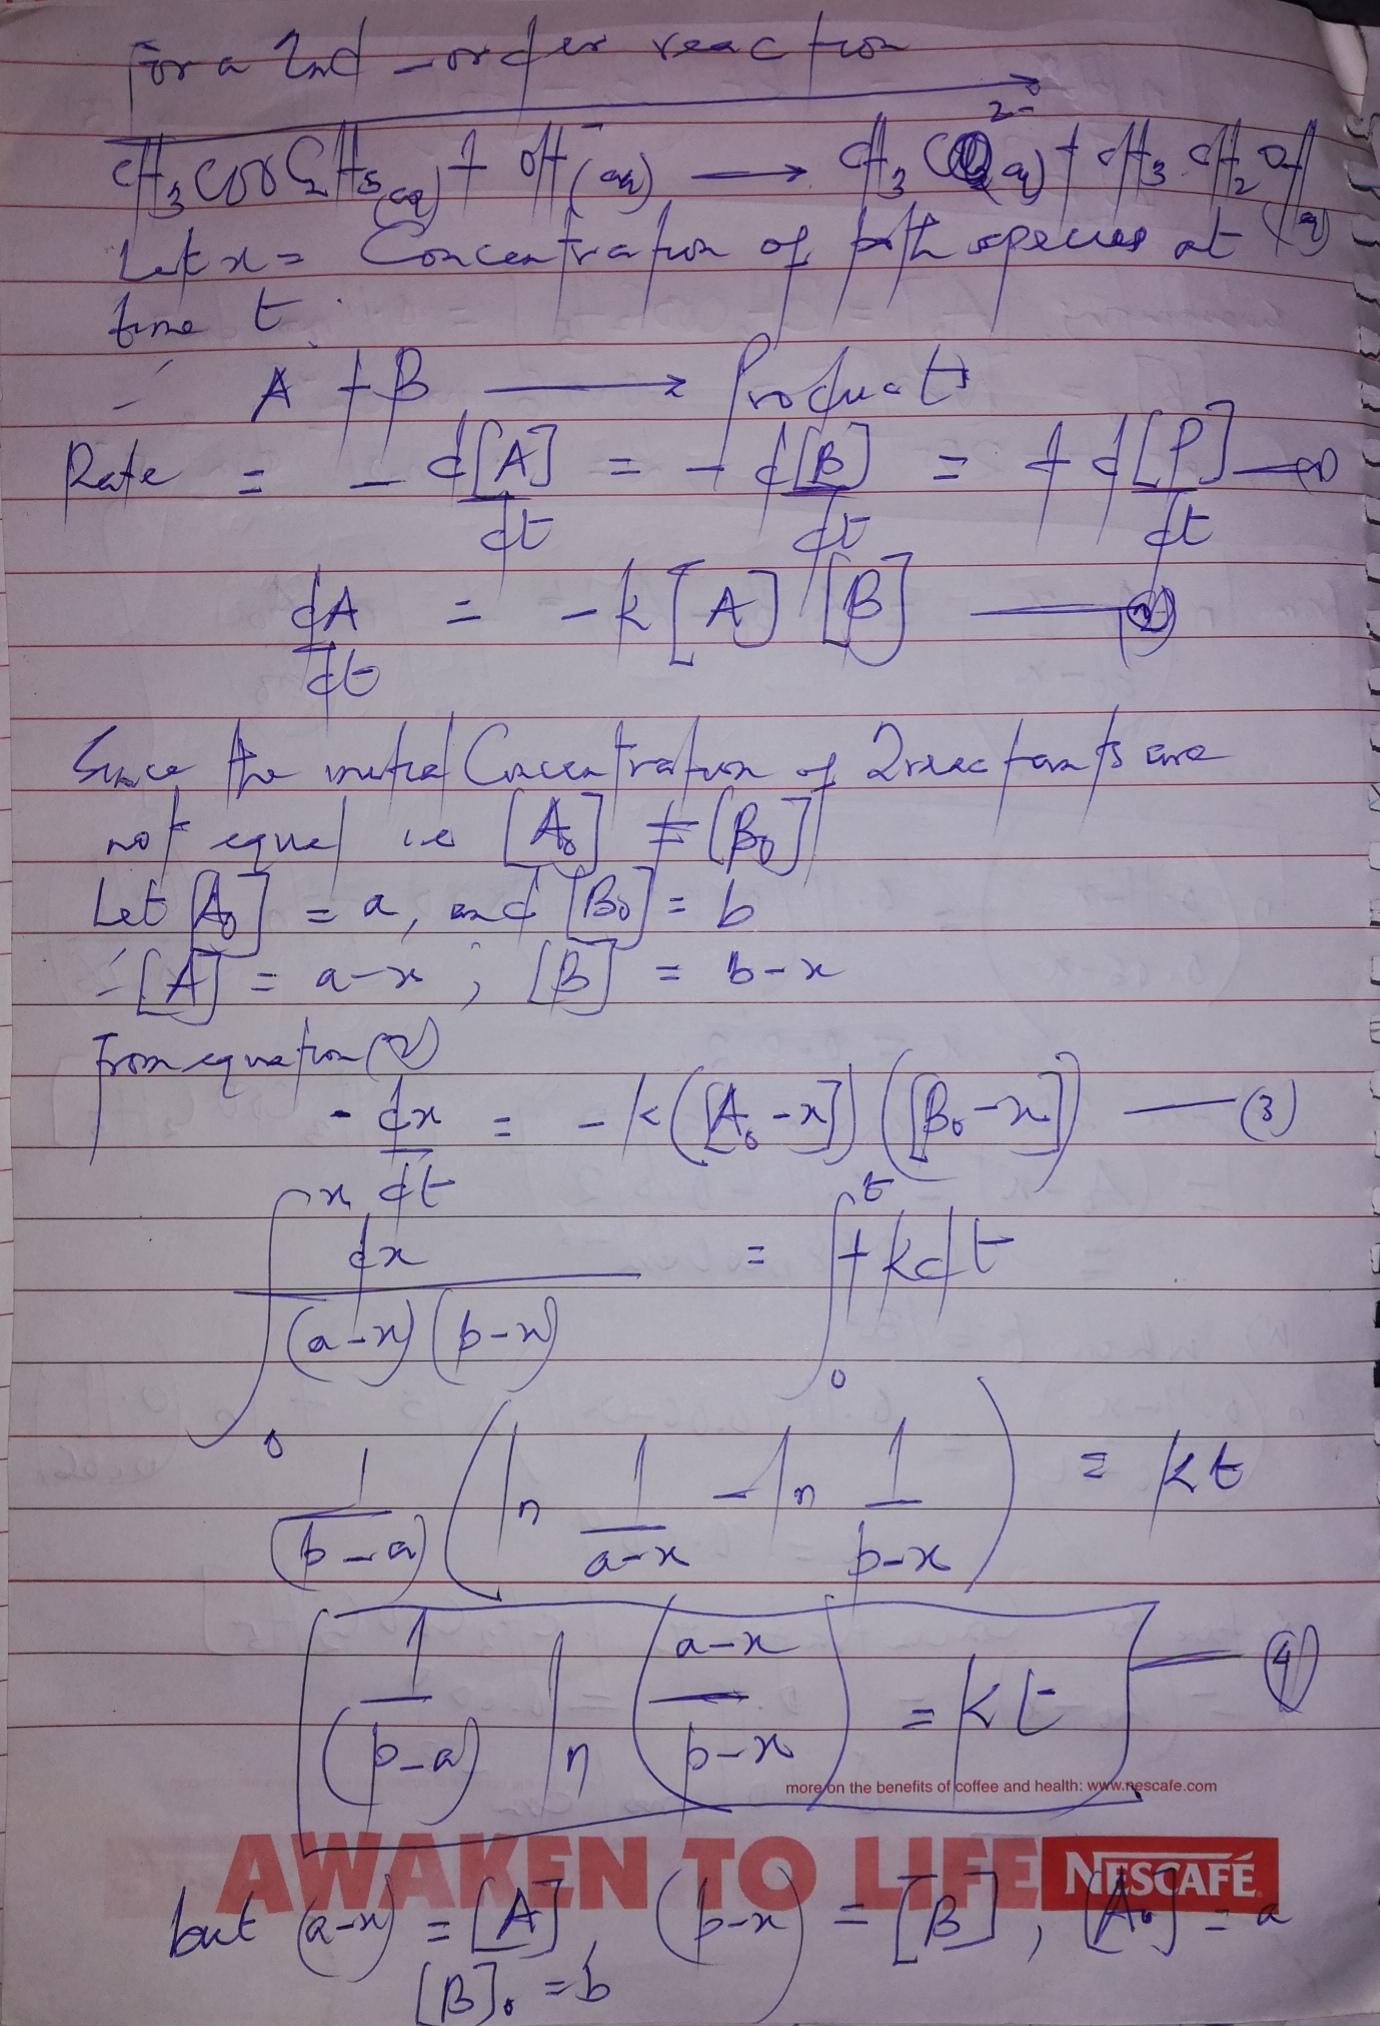 For a 2nd-order reaction
CH3COOC2H5(aq) + OH-(aq) → CH3CO2-(aq) + CH3CH2OH(aq)
Let x = Concentration of both species at
time t.
∴ A + B → Products
Rate = -d[A]/dt = -d[B]/dt = +d[P]/dt — (1)
dA/dt = -k[A][B] — (2)
Since the initial Concentration of 2 reactants are
not equal i.e [A₀] ≠ [B₀]
Let [A₀] = a, and [B₀] = b
∴ [A] = a-x ; [B] = b-x
From equation (2)
-dx/dt = -k([A₀-x])([B₀-x]) — (3)
∫₀ˣ dx/(a-x)(b-x) = ∫₀ᵗ +kdt
1/(b-a) (ln 1/a-x - ln 1/b-x) = kt
1/(b-a) ln (a-x/b-x) = kt — (4)
more on the benefits of coffee and health: www.nescafe.com
AWAKEN TO LIFE NESCAFÉ
but (a-x) = [A], (b-x) = [B], [A₀] = a
[B]₀ = b